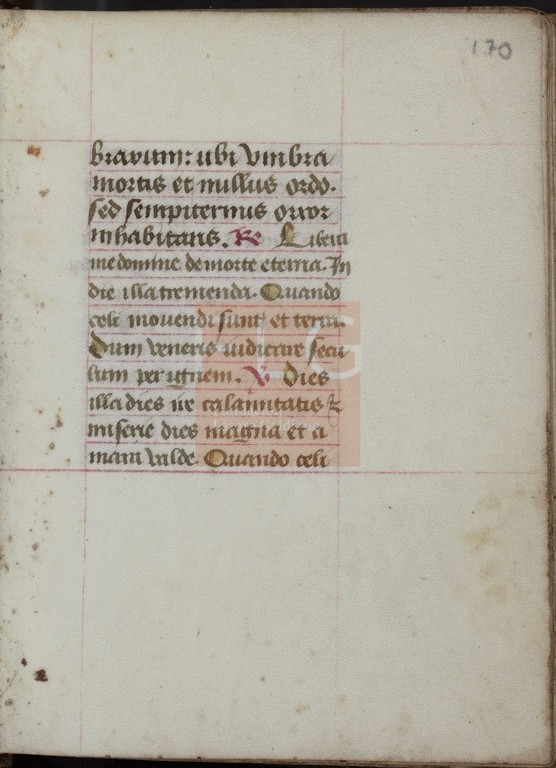 170
brarum: ubi vmbra
mortis et nullus ordo.
sed sempiternus orror
inhabitans. R Libera
me domine de morte eterna. In
die illa tremenda. Quando
celi mouendi sunt et terra.
Dum veneris iudicare secu
lum per ignem. V Dies
illa dies ire calamitatis z
miserie dies magna et a
mara valde. Quando celi